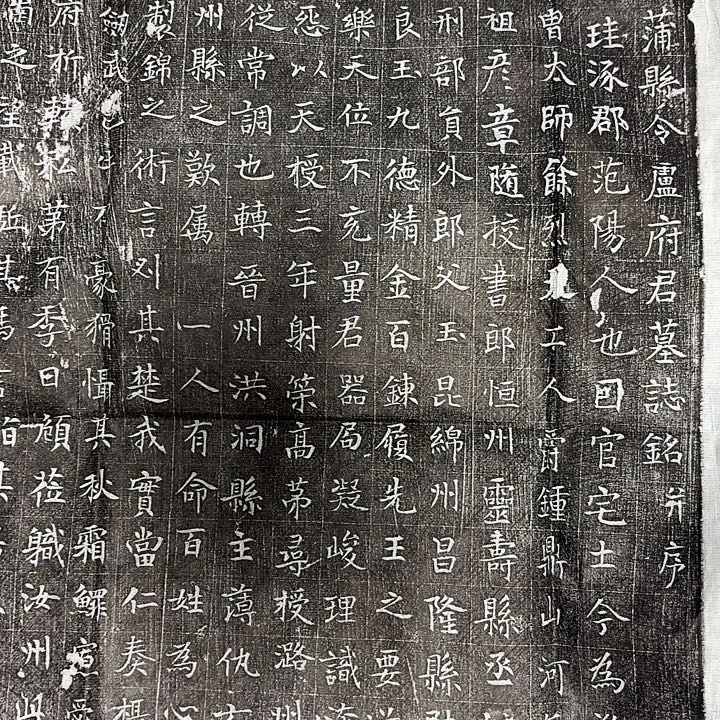 蒲縣令盧府君墓誌銘并序
珪涿郡范陽人也因官宅土今為
曾太師餘烈工人爵鍾鼎山河
祖彦章随校書郎恒州靈壽縣丞
刑部員外郎父玉昆綿州昌隆縣
良玉九德精金百鍊履先王之要
樂天位不充量君器局凝峻理識
怨以天授三年射榮高苐尋授潞州
從常調也轉晉州洪洞縣主薄仇
州縣之歎属一人有命百姓為心
製錦之術言刈其楚我實當仁奏
武豪猾懾其秋霜鰥
府折苐有季日頎莅軄汝州
之望載其